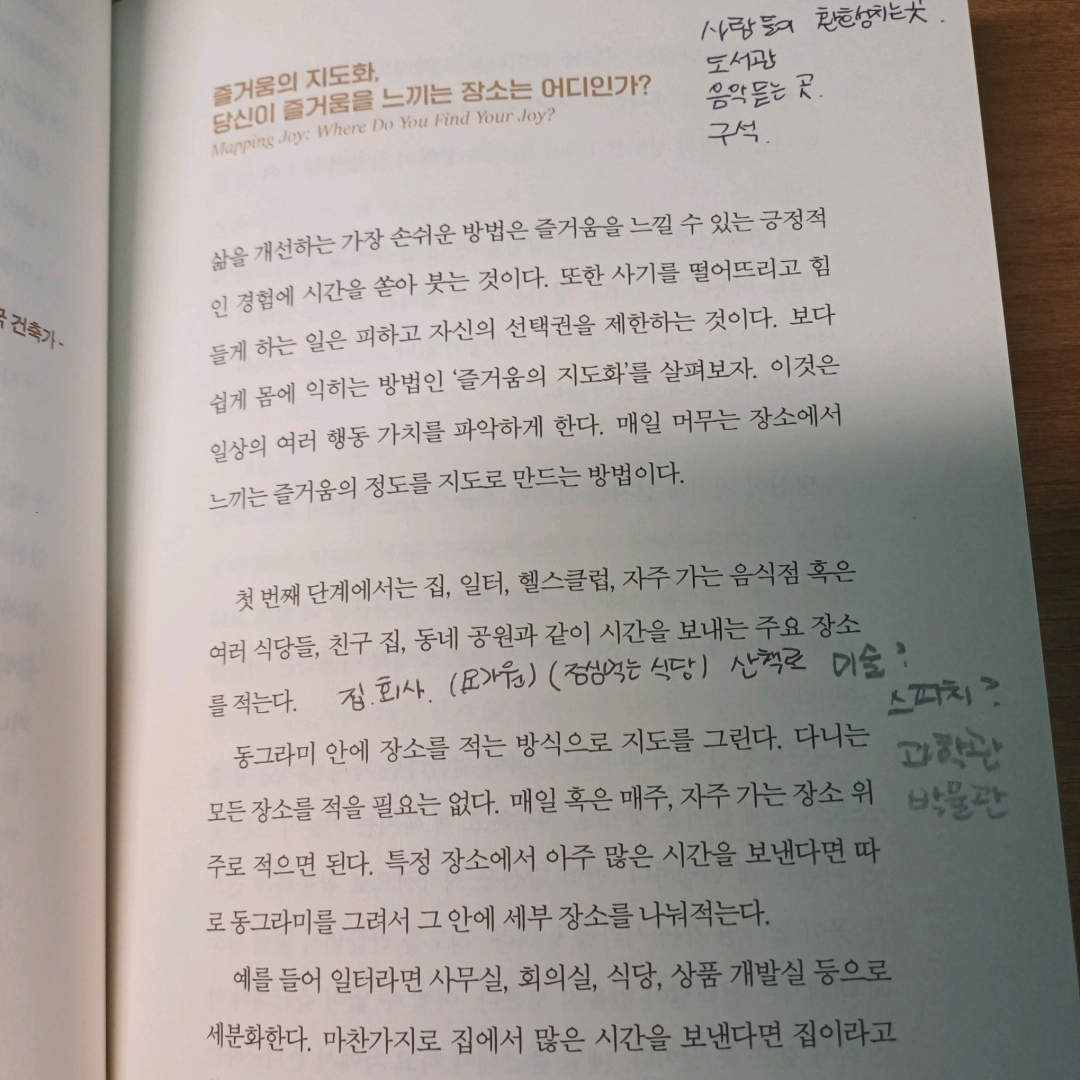 사람들이 환호성치는 곳.
도서관
음악 듣는 곳.
구석.
즐거움의 지도화,
당신이 즐거움을 느끼는 장소는 어디인가?
Mapping Joy: Where Do You Find Your Joy?
삶을 개선하는 가장 손쉬운 방법은 즐거움을 느낄 수 있는 긍정적
인 경험에 시간을 쏟아 붓는 것이다. 또한 사기를 떨어뜨리고 힘
들게 하는 일은 피하고 자신의 선택권을 제한하는 것이다. 보다
쉽게 몸에 익히는 방법인 ‘즐거움의 지도화’를 살펴보자. 이것은
일상의 여러 행동 가치를 파악하게 한다. 매일 머무는 장소에서
느끼는 즐거움의 정도를 지도로 만드는 방법이다.
첫 번째 단계에서는 집, 일터, 헬스클럽, 자주 가는 음식점 혹은
여러 식당들, 친구 집, 동네 공원과 같이 시간을 보내는 주요 장소
를 적는다.
집. 회사. (요가원) (점심먹는 식당) 산책로 미술?
스피치?
과학관
박물관
동그라미 안에 장소를 적는 방식으로 지도를 그린다. 다니는
모든 장소를 적을 필요는 없다. 매일 혹은 매주, 자주 가는 장소 위
주로 적으면 된다. 특정 장소에서 아주 많은 시간을 보낸다면 따
로 동그라미를 그려서 그 안에 세부 장소를 나눠 적는다.
예를 들어 일터라면 사무실, 회의실, 식당, 상품 개발실 등으로
세분화한다. 마찬가지로 집에서 많은 시간을 보낸다면 집이라고
건축가-